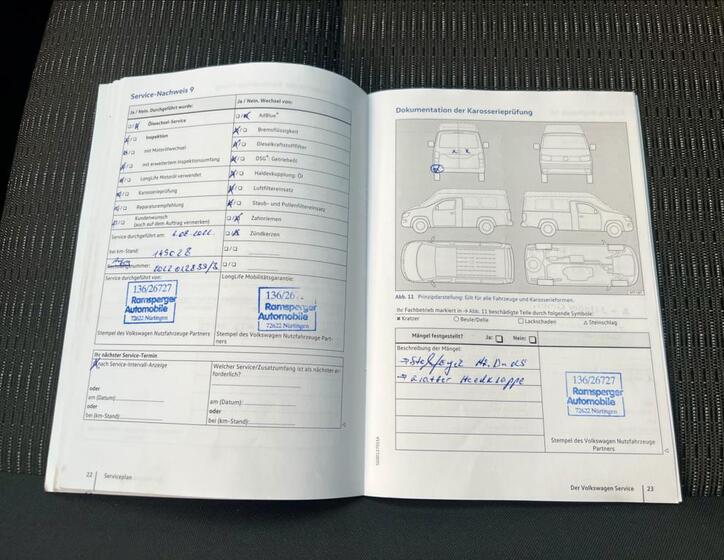 Service-Nachweis 9
Ja / Nein. Durchgeführt wurde:
Ölwechsel-Service
Inspektion
mit Motorölwechsel
mit erweitertem Inspektionsumfang
LongLife Motoröl verwendet
Karosserieprüfung
Reparaturempfehlung
Kundenwunsch
(auch auf dem Auftrag vermerken)
Service durchgeführt am:
bei km-Stand:
nummer:
Service durchgeführt von:
136/26727
Ramsperger
Automobile
72622 Nürtingen
Stempel des Volkswagen Nutzfahrzeuge Partners
Ja / Nein. Wechsel von:
AdBlue®
Bremsflüssigkeit
Dieselkraftstofffilter
DSG®: Getriebeöl
Haldexkupplung: Öl
Luftfiltereinsatz
Staub- und Pollenfiltereinsatz
Zahnriemen
Zündkerzen
LongLife Mobilitätsgarantie:
136/26
Ramsperger
Automobile
72622 Nürtingen
Stempel des Volkswagen Nutzfahrzeuge Part-
ners
Ihr nächster Service-Termin
nach Service-Intervall-Anzeige
oder
am (Datum):
oder
bei (km-Stand):
Welcher Service/Zusatzumfang ist als nächster er-
forderlich?
am (Datum):
oder
bei (km-Stand):
22 Serviceplan
Dokumentation der Karosserieprüfung
Abb. 11 Prinzipdarstellung: Gilt für alle Fahrzeuge und Karosserieformen.
Ihr Fachbetrieb markiert in → Abb. 11 beschädigte Teile durch folgende Symbole:
× Kratzer ○ Beule/Delle □ Lackschaden △ Steinschlag
Mängel festgestellt? Ja: Nein:
Beschreibung der Mängel:
136/26727
Ramsperger
Automobile
72622 Nürtingen
Stempel des Volkswagen Nutzfahrzeuge
Partners
Der Volkswagen Service 23